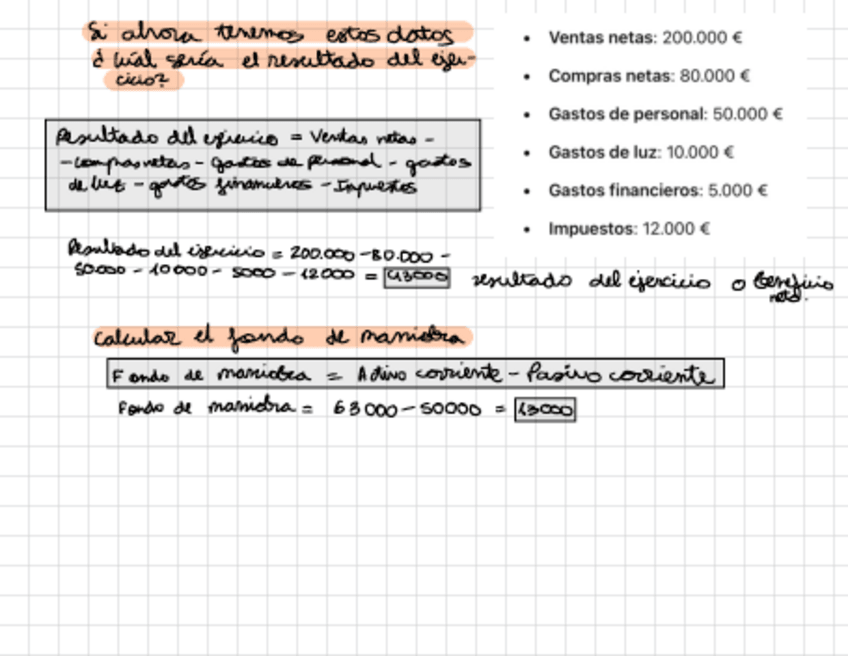 Si ahora tenemos estos datos
¿ Cuál sería el resultado del ejer-
cicio?
• Ventas netas: 200.000 €
• Compras netas: 80.000 €
• Gastos de personal: 50.000 €
• Gastos de luz: 10.000 €
• Gastos financieros: 5.000 €
• Impuestos: 12.000 €
Resultado del ejercicio = Ventas netas -
- compras netas - Gastos de personal - gastos
de luz - gastos financieros - Impuestos
Resultado del ejercicio = 200.000 - 80.000 -
50.000 - 10000 - 5000 - 12000 = 43000 resultado del ejercicio o beneficio
neto.
Calcular el fondo de maniobra
Fondo de maniobra = Activo corriente - Pasivo corriente
Fondo de maniobra = 63000 - 50000 = 13000